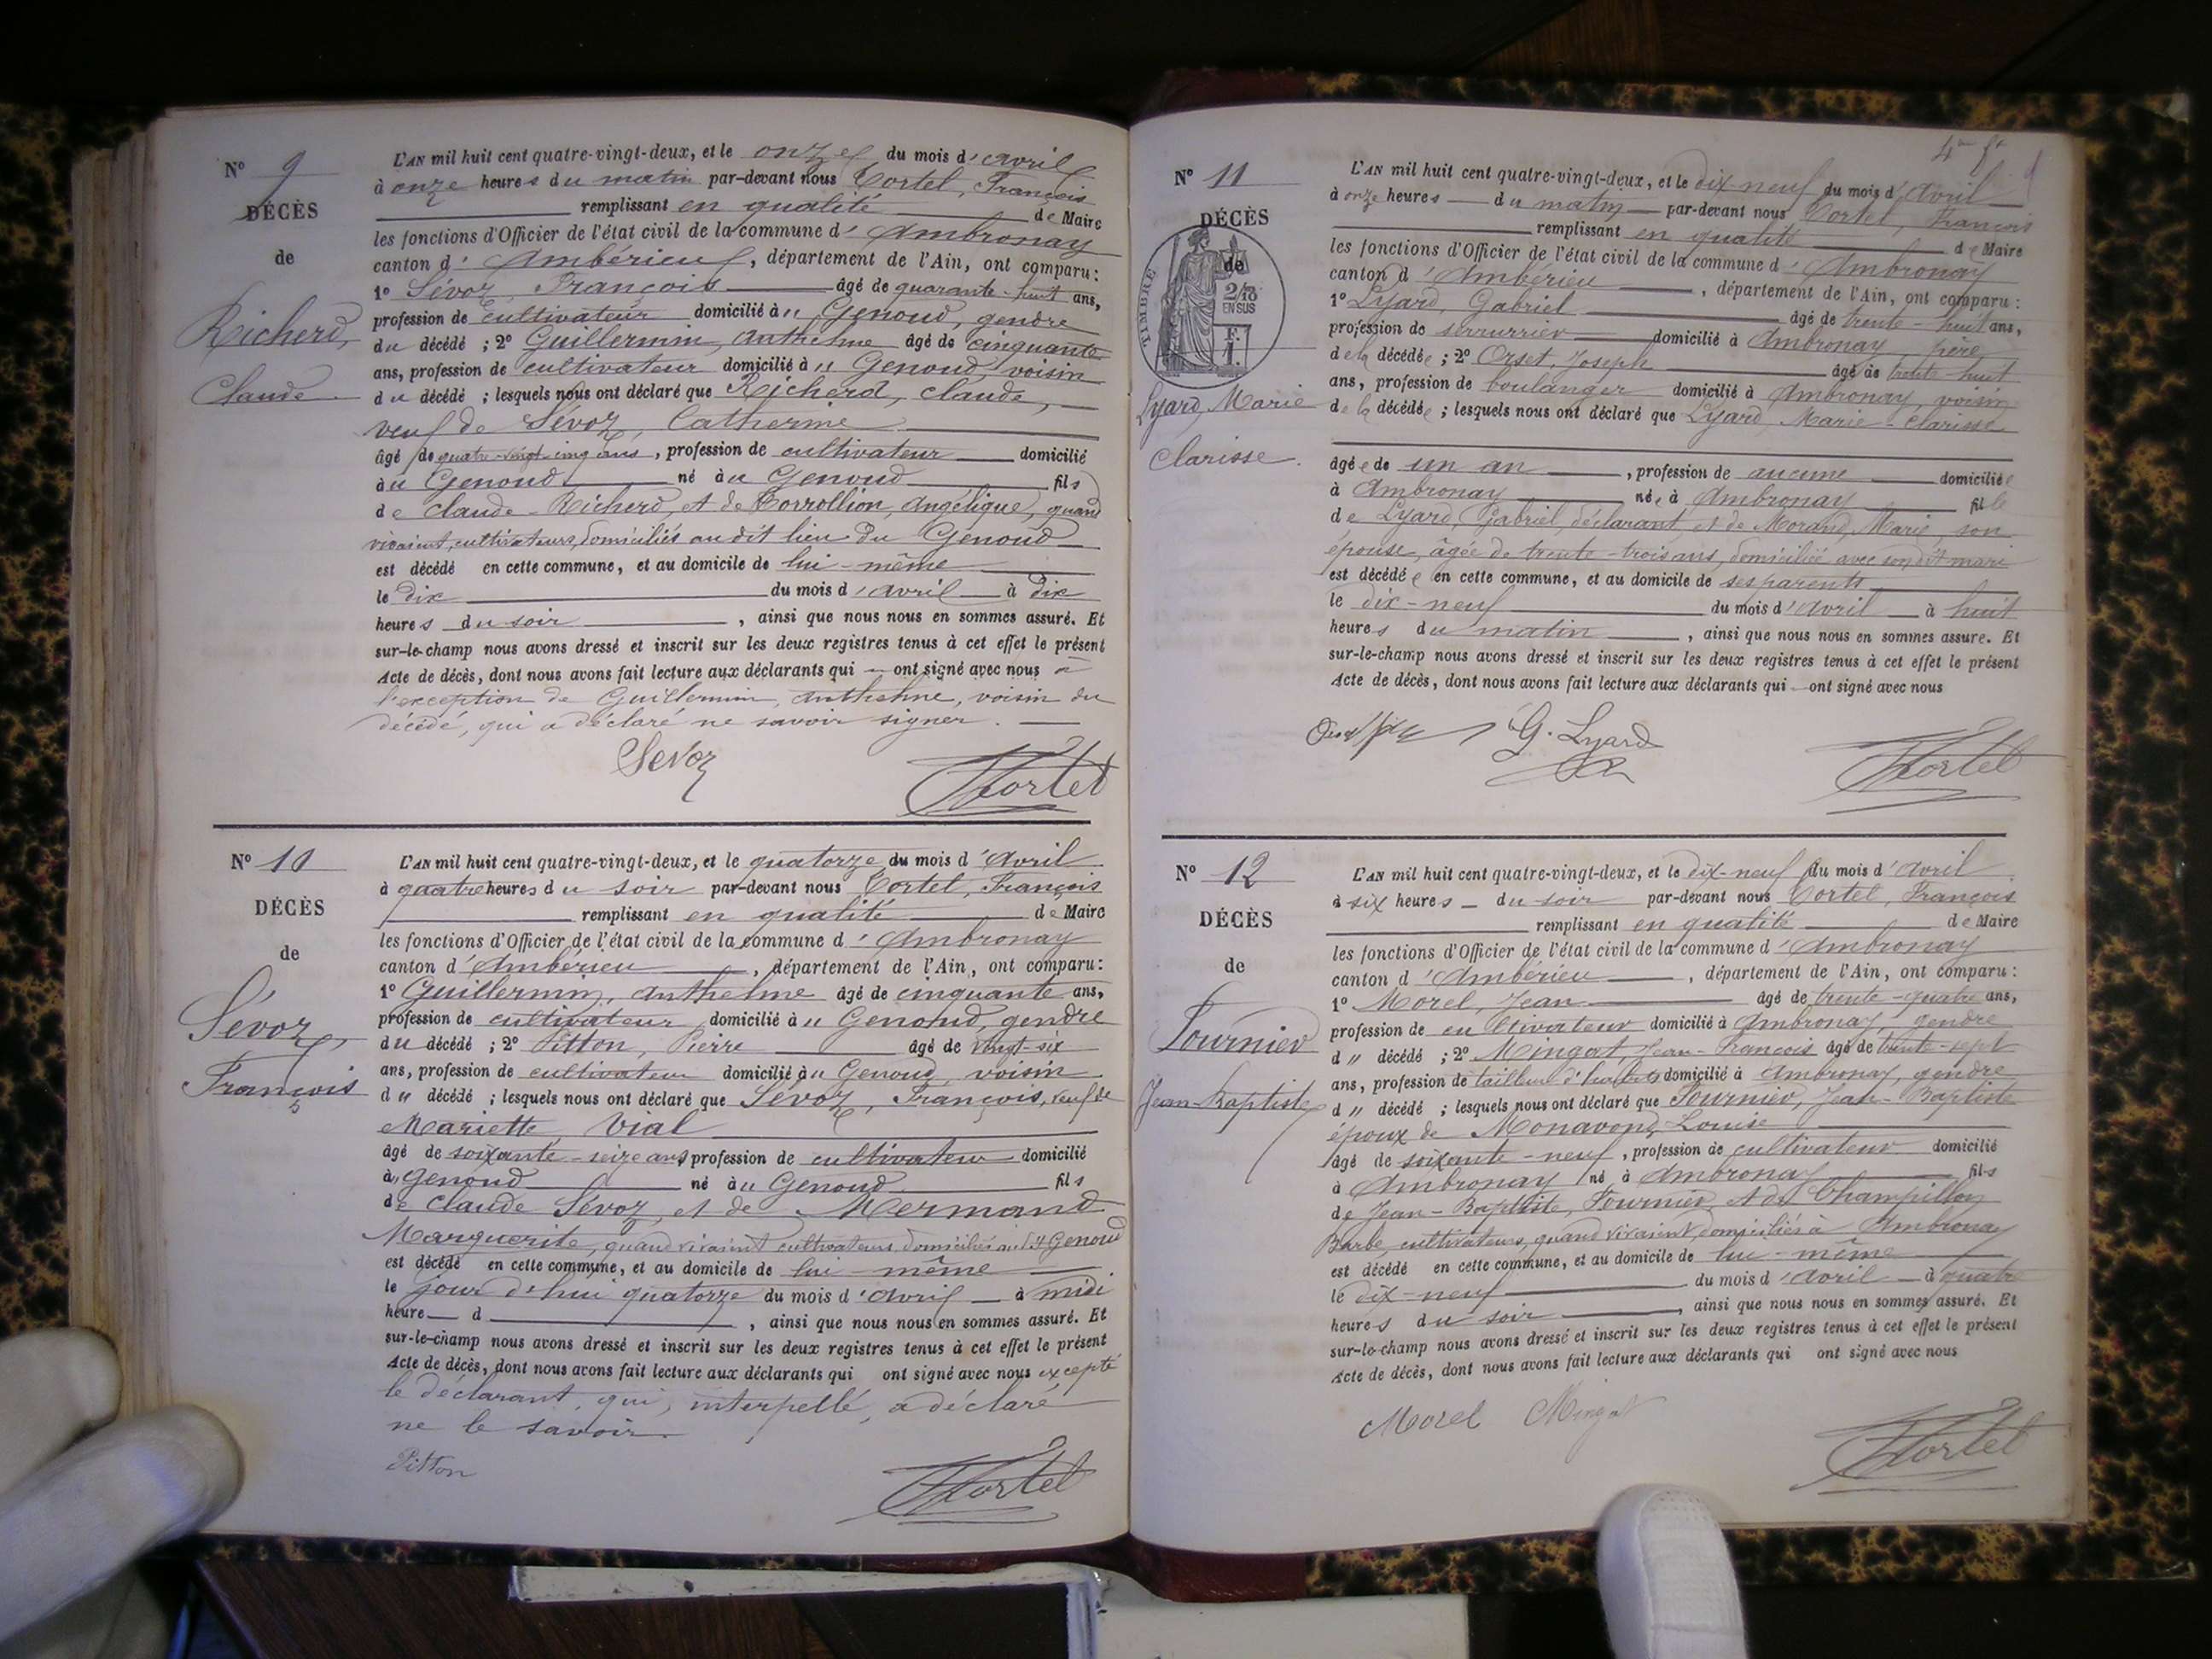 N° 9
DÉCÈS
de
Richerd,
Claude.
L'AN mil huit cent quatre-vingt-deux, et le onze du mois d'avril
à onze heures du matin par-devant nous Tortel, François
remplissant en qualité de Maire
les fonctions d'Officier de l'état civil de la commune d'Ambronay
canton d'Ambérieu, département de l'Ain, ont comparu:
1° Sévoz, François âgé de quarante-huit ans,
profession de cultivateur domicilié à u Genoud, gendre
du décédé ; 2° Guillermin, Anthelme âgé de cinquante
ans, profession de cultivateur domicilié à u Genoud, voisin
du décédé ; lesquels nous ont déclaré que Richerd, Claude,
veuf de Sévoz, Catherine
âgé de quatre-vingt-cinq ans, profession de cultivateur domicilié
au Genoud né au Genoud fils
de Claude Richerd, et de Corrollion, Angélique, quand
vivaient, cultivateurs, domiciliés au dit lieu du Genoud
est décédé en cette commune, et au domicile de lui-même
le dix du mois d'avril à dix
heures du soir, ainsi que nous nous en sommes assuré. Et
sur-le-champ nous avons dressé et inscrit sur les deux registres tenus à cet effet le présent
Acte de décès, dont nous avons fait lecture aux déclarants qui — ont signé avec nous à
l'exception de Guillermin, Anthelme, voisin du
décédé, qui a déclaré ne savoir signer.
Sevoz
Tortel
N° 10
DÉCÈS
de
Sévoz,
François
L'AN mil huit cent quatre-vingt-deux, et le quatorze du mois d'avril
à quatre heures du soir par-devant nous Tortel, François
remplissant en qualité de Maire
les fonctions d'Officier de l'état civil de la commune d'Ambronay
canton d'Ambérieu, département de l'Ain, ont comparu:
1° Guillermin, Anthelme âgé de cinquante ans,
profession de cultivateur domicilié à u Genoud, gendre
du décédé ; 2° Pitton, Pierre âgé de vingt-six
ans, profession de cultivateur domicilié à u Genoud, voisin
d u décédé ; lesquels nous ont déclaré que Sévoz, François, veuf de
Mariette Vial
âgé de soixante-seize ans profession de cultivateur domicilié
à u Genoud né à u Genoud fils
de Claude Sévoz, et de Mermand
Marguerite, quand vivaient cultivateurs domiciliés au dt Genoud
est décédé en cette commune, et au domicile de lui-même
le jour d'hui quatorze du mois d'avril à midi
heure d, ainsi que nous nous en sommes assuré. Et
sur-le-champ nous avons dressé et inscrit sur les deux registres tenus à cet effet le présent
Acte de décès, dont nous avons fait lecture aux déclarants qui ont signé avec nous excepté
le déclarant, qui, interpellé, a déclaré
ne le savoir.
Pitton
Tortel
N° 11
DÉCÈS
de
TIMBRE
2/10
EN SUS
F.
1.
Lyard, Marie
Clarisse.
L'AN mil huit cent quatre-vingt-deux, et le dix-neuf du mois d'avril
à onze heures du matin par-devant nous Tortel, François
remplissant en qualité de Maire
les fonctions d'Officier de l'état civil de la commune d'Ambronay
canton d'Ambérieu, département de l'Ain, ont comparu:
1° Lyard, Gabriel âgé de trente-huit ans,
profession de serrurrier domicilié à Ambronay, père
de la décédée ; 2° Orset, Joseph âgé de trente-huit
ans, profession de boulanger domicilié à Ambronay, voisin
de la décédée ; lesquels nous ont déclaré que Lyard, Marie-Clarisse
âgée de un an, profession de aucune domiciliée
à Ambronay née à Ambronay fille
de Lyard, Gabriel, déclarant, et de Morand, Marie, son
épouse, âgée de trente-trois ans, domiciliée avec son dit mari
est décédée en cette commune, et au domicile de ses parents
le dix-neuf du mois d'avril à huit
heures du matin, ainsi que nous nous en sommes assuré. Et
sur-le-champ nous avons dressé et inscrit sur les deux registres tenus à cet effet le présent
Acte de décès, dont nous avons fait lecture aux déclarants qui — ont signé avec nous
G. Lyard
Tortel
N° 12
DÉCÈS
de
Fournier
Jean-Baptiste
L'AN mil huit cent quatre-vingt-deux, et le dix-neuf du mois d'avril
à six heures du soir par-devant nous Tortel, François
remplissant en qualité de Maire
les fonctions d'Officier de l'état civil de la commune d'Ambronay
canton d'Ambérieu, département de l'Ain, ont comparu:
1° Morel, Jean âgé de trente-quatre ans,
profession de cultivateur domicilié à Ambronay, gendre
d u décédé ; 2° Mingat, Jean-François âgé de trente-sept
ans, profession de tailleur d'habits domicilié à Ambronay, gendre
d u décédé ; lesquels nous ont déclaré que Fournier, Jean-Baptiste
époux de Monavond, Louise
âgé de soixante-neuf, profession de cultivateur domicilié
à Ambronay né à Ambronay fils
de Jean-Baptiste, Fournier, et de Champillon
Barbe, cultivateurs, quand vivaient domiciliés à Ambronay
est décédé en cette commune, et au domicile de lui-même
le dix-neuf du mois d'avril à quatre
heures du soir, ainsi que nous nous en sommes assuré. Et
sur-le-champ nous avons dressé et inscrit sur les deux registres tenus à cet effet le présent
Acte de décès, dont nous avons fait lecture aux déclarants qui ont signé avec nous
Morel Mingat
Tortel